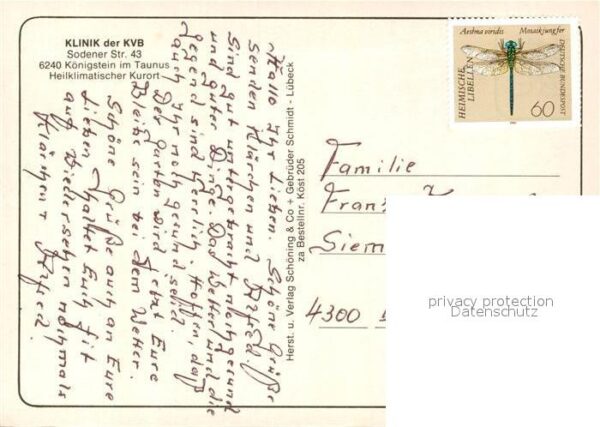 KLINIK der KVB
Sodener Str. 43
6240 Königstein im Taunus
Heilklimatischer Kurort
Hallo Ihr Lieben. Schöne Grüße
senden Klärchen und Alfred.
Sind gut untergebracht und
und guter Dinge. Das Wetter und die
gegend sind herrlich. Hoffen, daß
auch Ihr noch gesund seid.
Der Garten wird jetzt Eure
Bleibe sein bei dem Wetter.
Schöne Grüße auch an Eure
Lieben, haltet Euch fit
auf Wiedersehen nochmals
Klärchen + Alfred.
Herst. u. Verlag Schöning & Co + Gebrüder Schmidt - Lübeck
za Bestellnr. Köst 205
Aeshna viridis Mosaikjungfer
HEIMISCHE
LIBELLEN
DEUTSCHE BUNDESPOST
60
Familie
Franz
Siem
4300
privacy protection
Datenschutz